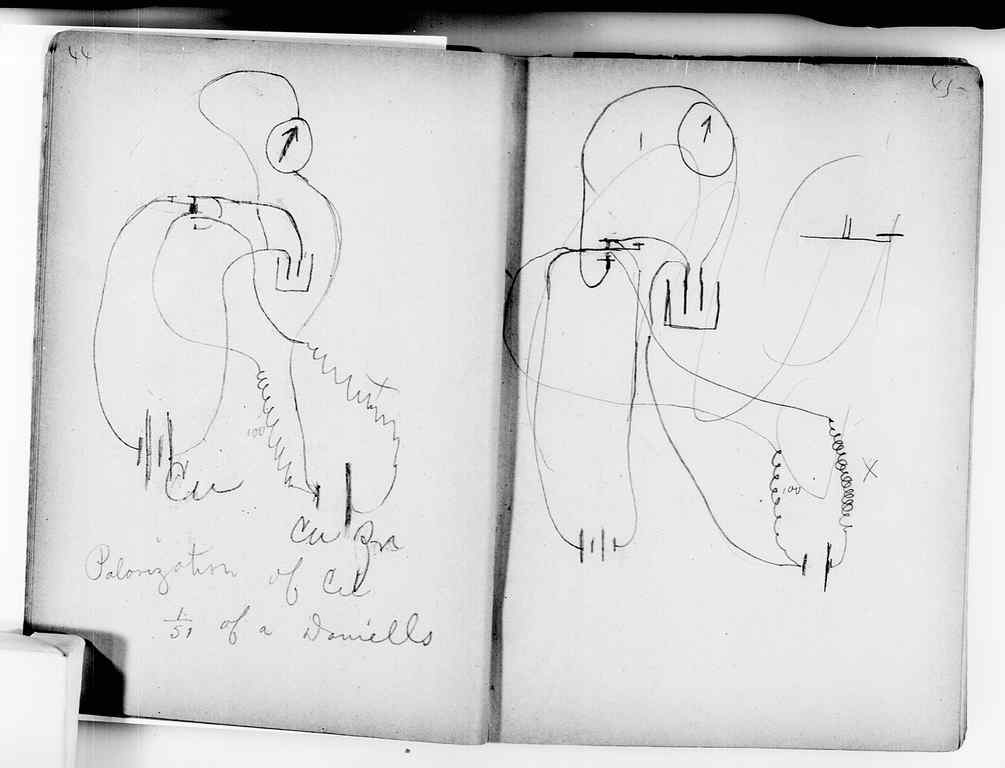 44
100
X
Cu
Cu Zn
Polorization of Cu
1/51 of a Daniells
45
100
X